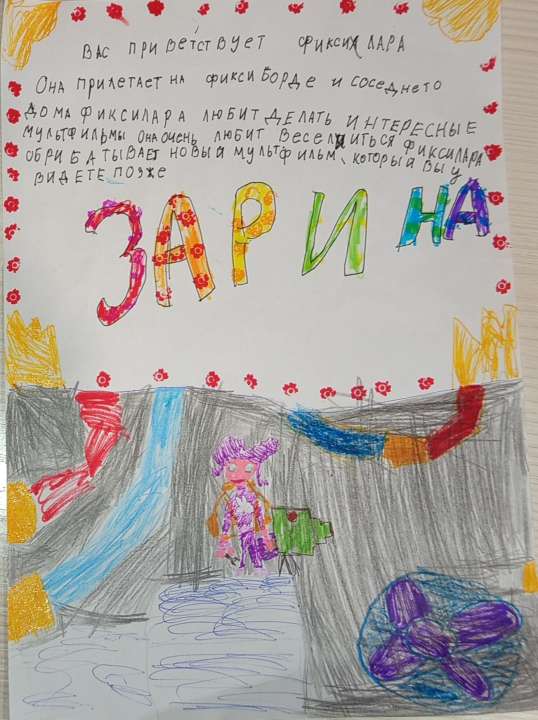 ВАС ПРИВЕТСТВУЕТ ФИКСИЛАРА
ОНА ПРИЛЕТАЕТ НА ФИКСИБОРДЕ И СОСЕДНЕГО
ДОМА ФИКСИЛАРА ЛЮБИТ ДЕЛАТЬ ИНТЕРЕСНЫЕ
МУЛЬТФИЛЬМЫ ОНА ОЧЕНЬ ЛЮБИТ ВЕСЕЛИТЬСЯ ФИКСИЛАРА
ОБРИБАТЫВАЕТ НОВЫЙ МУЛЬТФИЛЬМ, КОТОРЫЙ ВЫ У
ВИДЕТЕ ПОЗЖЕ
ЗАРИНА